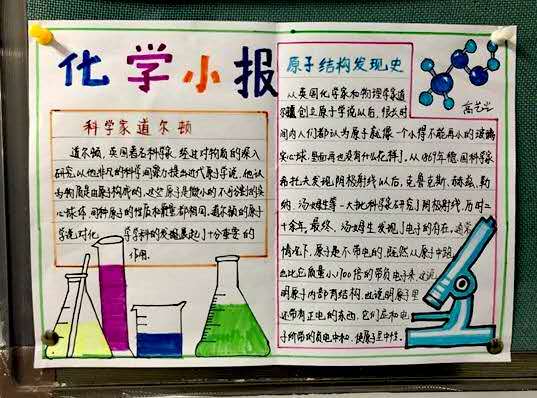 化学小报
科学家道尔顿
道尔顿,英国著名科学家,经过对物质的深入
研究,以他非凡的科学洞察力提出近代原子学说,他认
为物质是由原子构成的,这些原子是微小的不可分割的实
心球体,同种原子的性质和质量都相同,道尔顿的原子
学说对化学学科的发展起了十分重要的
作用.
原子结构发现史
高艺
从英国化学家和物理学家道
尔顿创立原子学说以后,很长时
间内人们都认为原子就像一个小得不能再小的玻璃
实心球,里面再也没有什么花样了.从1869年德国科学家
希托夫发现阴极射线以后,克鲁克斯、赫兹、勒
纳、汤姆生等一大批科学家研究了阴极射线,历时二
十余年,最终,汤姆生发现了电子的存在,通常
情况下,原子是不带电的,既然从原子中跑
出比它质量小1700倍的带负电子来,这说
明原子内部有结构,也说明原子里
还带有正电的东西,它们应和电
子所带的负电中和,使原子呈中性.